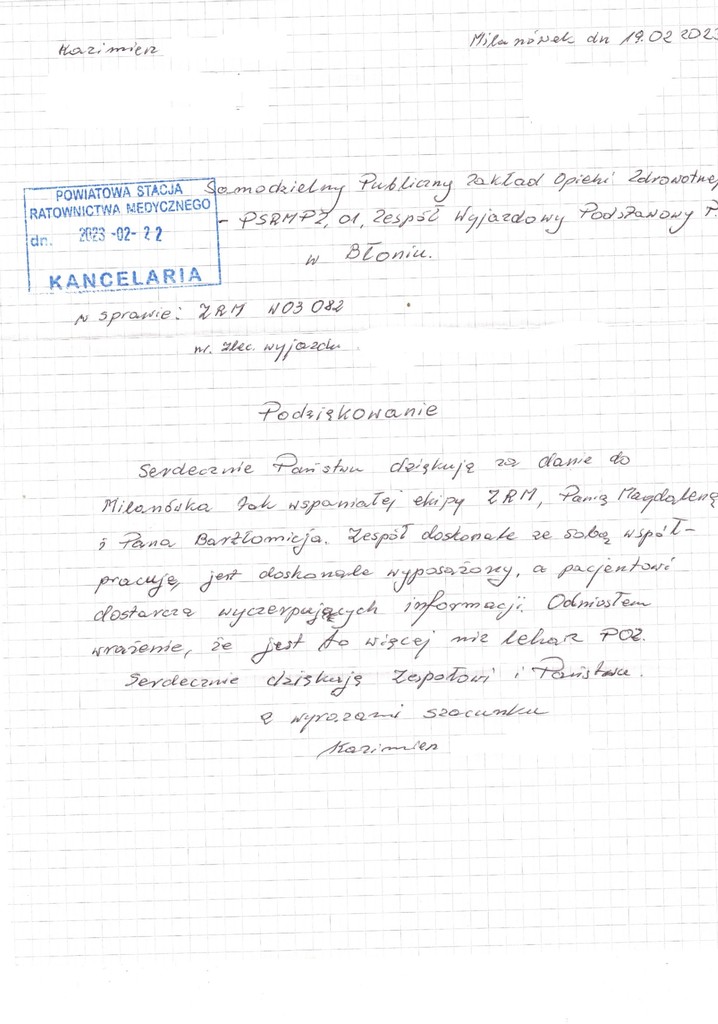 Kazimierz
Milanówek dn 19.02 2023
POWIATOWA STACJA
RATOWNICTWA MEDYCZNEGO
dn. 2023-02-22
KANCELARIA
Samodzielny Publiczny Zakład Opieki Zdrowotnej
- PSRMPZ, 01, Zespół Wyjazdowy Podstawowy P.
w Błoniu.
w sprawie: ZRM W03 082
nr. zlec. wyjazdu
Podziękowanie
Serdecznie Państwu dziękuję za danie do
Milanówka tak wspaniałej ekipy ZRM, Panią Magdalenę
i Pana Bartłomieja. Zespół doskonale ze sobą współ-
pracuje, jest doskonale wyposażony, a pacjentowi
dostarcza wyczerpujących informacji. Odniosłem
wrażenie, że jest to więcej niż lekarz POZ.
Serdecznie dziękuję Zespołowi i Państwu.
Z wyrazami szacunku
Kazimierz